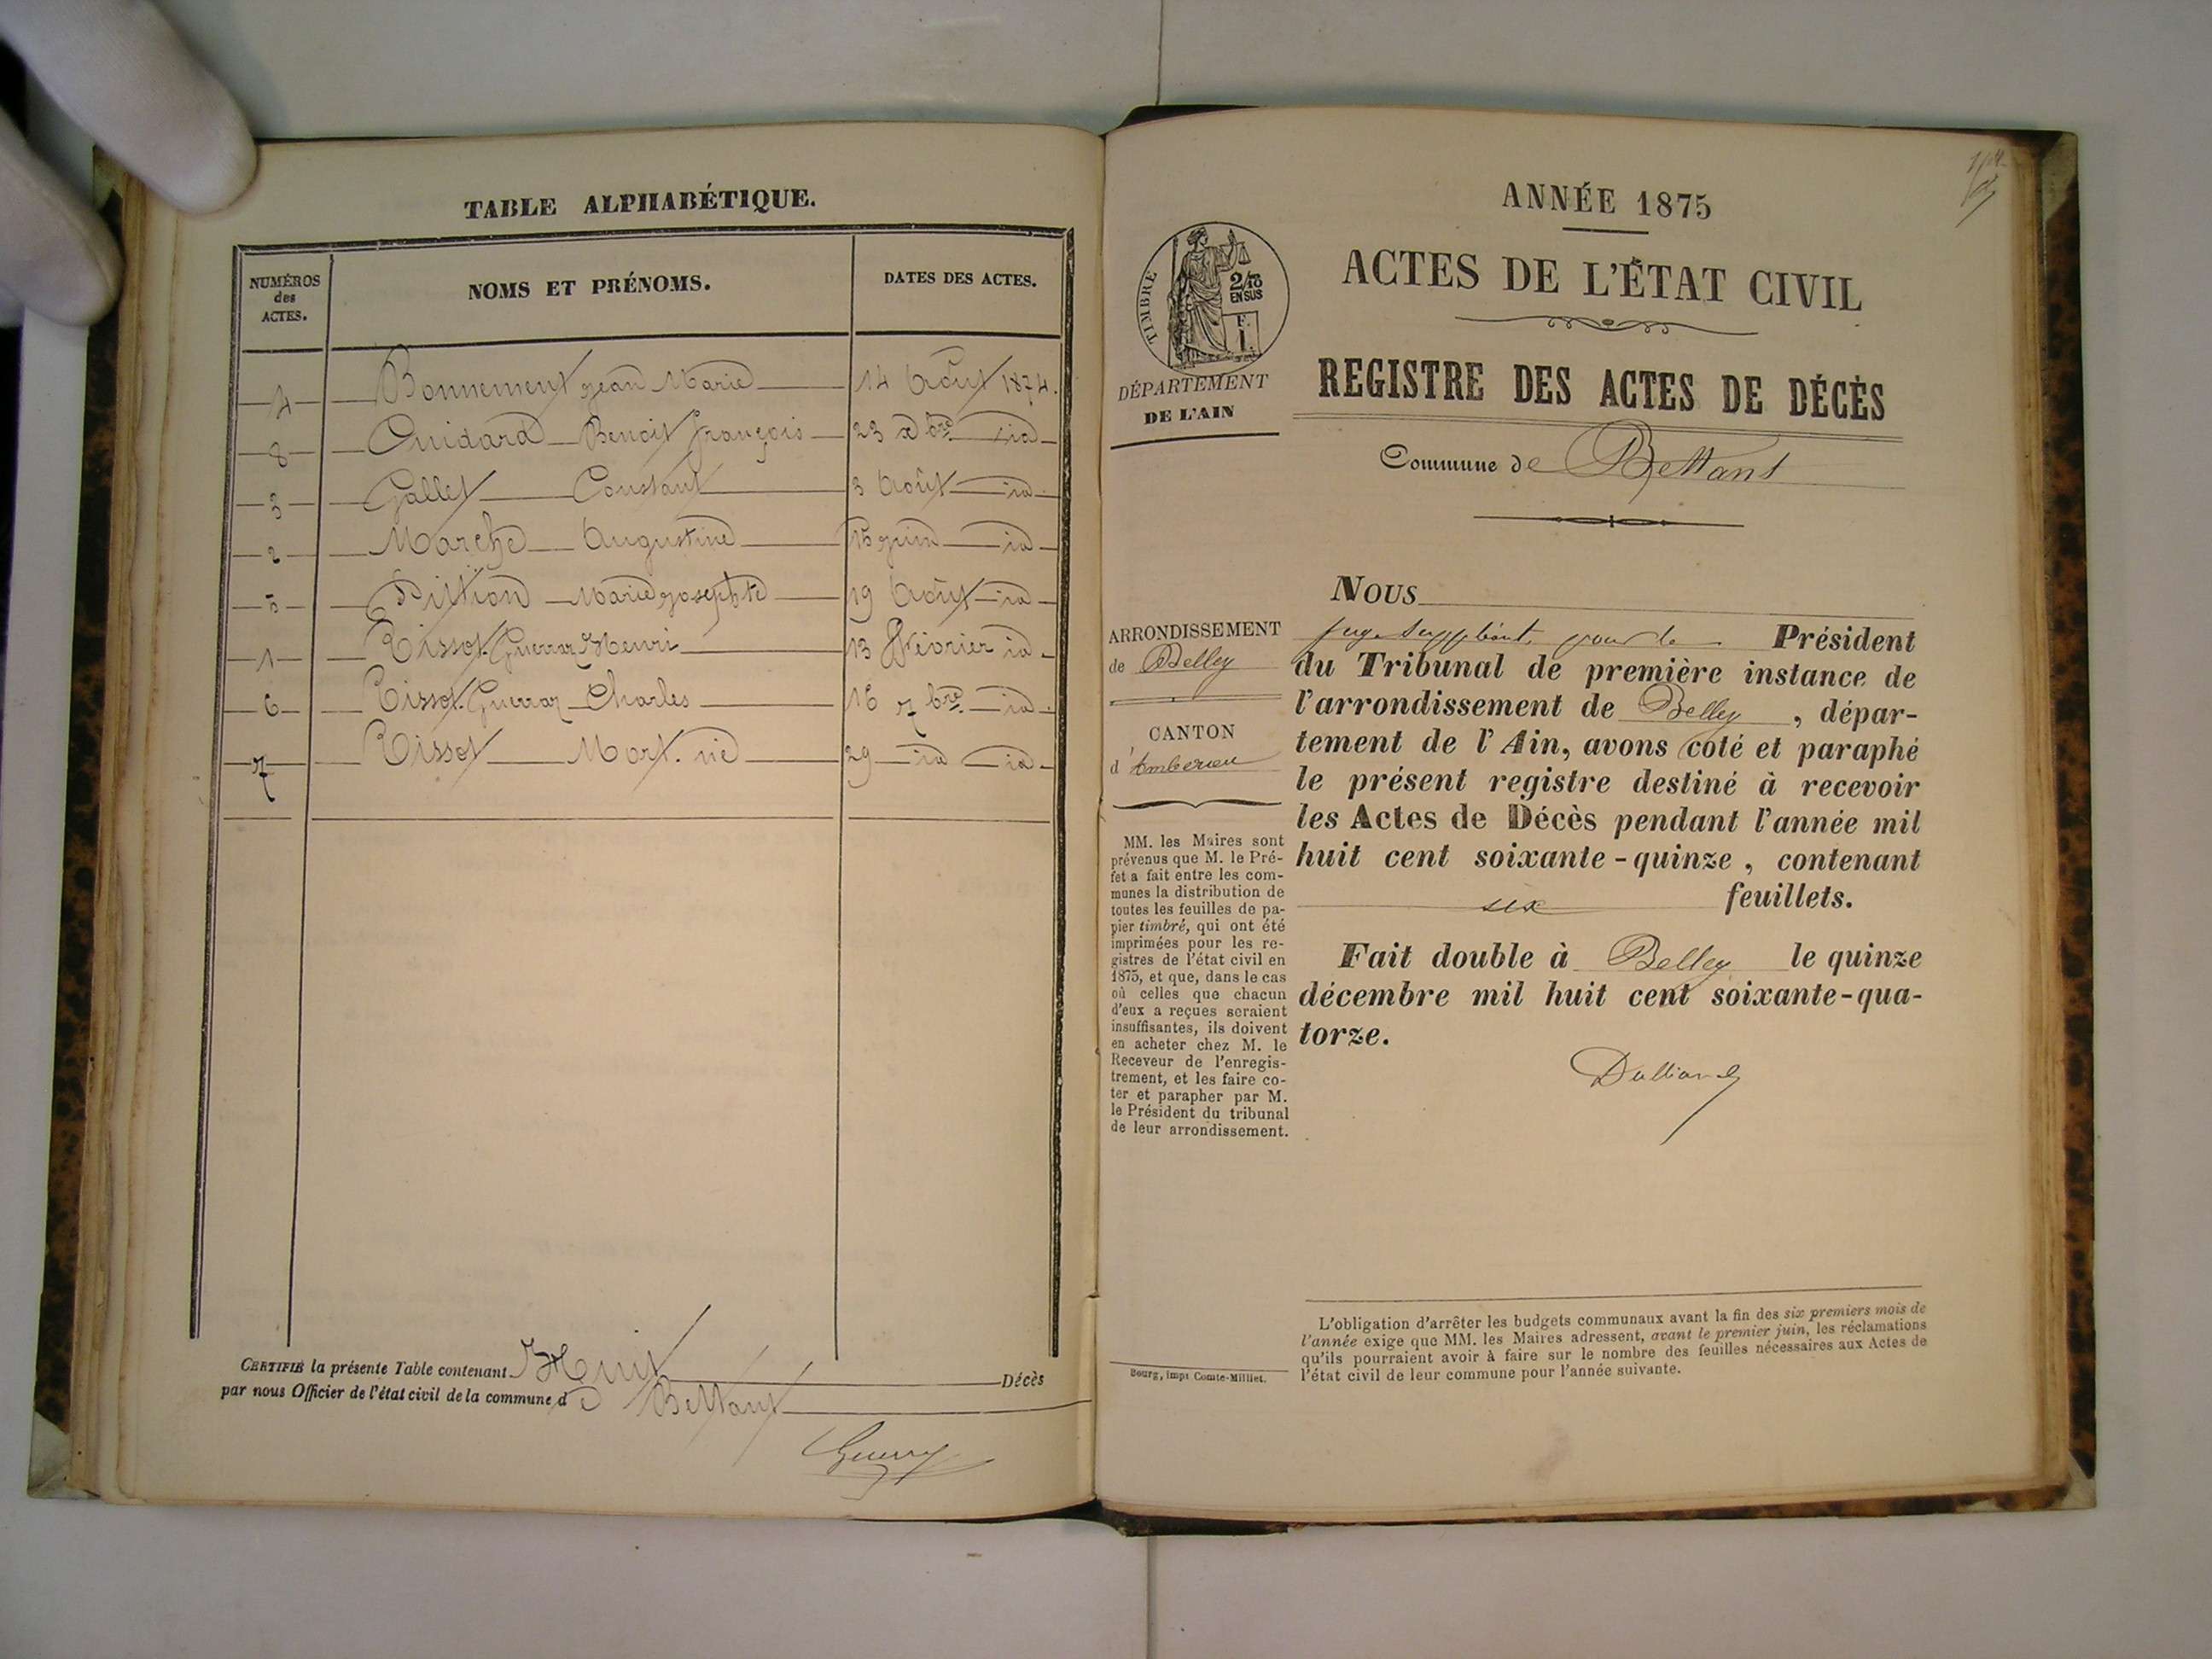 TABLE ALPHABÉTIQUE.
NUMÉROS
des
ACTES.
NOMS ET PRÉNOMS.
DATES DES ACTES.
4 Bonnement jean Marie 14 Août 1874.
8 Cuidard Benoit françois 23 xbre id
3 Gallet Constant 3 Août id
2 Marche Augustine 15 juin id
5 Pittion Marie josephte 19 Août id
1 Tissot Guerraz Henri 13 Février id
6 Tissot Guerraz Charles 16 7bre id
7 Tissot Mort. né 29 id id
CERTIFIÉ la présente Table contenant Huit Décès
par nous Officier de l'état civil de la commune de Bettant
ANNÉE 1875
ACTES DE L'ÉTAT CIVIL
REGISTRE DES ACTES DE DÉCÈS
Commune de Bettant
TIMBRE
2/10
EN SUS
F.
1.
DÉPARTEMENT
DE L'AIN
ARRONDISSEMENT
de Belley
CANTON
d'Amberieu
MM. les Maires sont
prévenus que M. le Pré-
fet a fait entre les com-
munes la distribution de
toutes les feuilles de pa-
pier timbré, qui ont été
imprimées pour les re-
gistres de l'état civil en
1875, et que, dans le cas
où celles que chacun
d'eux a reçues seraient
insuffisantes, ils doivent
en acheter chez M. le
Receveur de l'enregis-
trement, et les faire co-
ter et parapher par M.
le Président du tribunal
de leur arrondissement.
Bourg, imp. Comte-Milliet.
NOUS
juge suppléant, pour le Président
du Tribunal de première instance de
l'arrondissement de Belley, dépar-
tement de l'Ain, avons coté et paraphé
le présent registre destiné à recevoir
les Actes de Décès pendant l'année mil
huit cent soixante-quinze, contenant
six feuillets.
Fait double à Belley le quinze
décembre mil huit cent soixante-qua-
torze.
L'obligation d'arrêter les budgets communaux avant la fin des six premiers mois de
l'année exige que MM. les Maires adressent, avant le premier juin, les réclamations
qu'ils pourraient avoir à faire sur le nombre des feuilles nécessaires aux Actes de
l'état civil de leur commune pour l'année suivante.